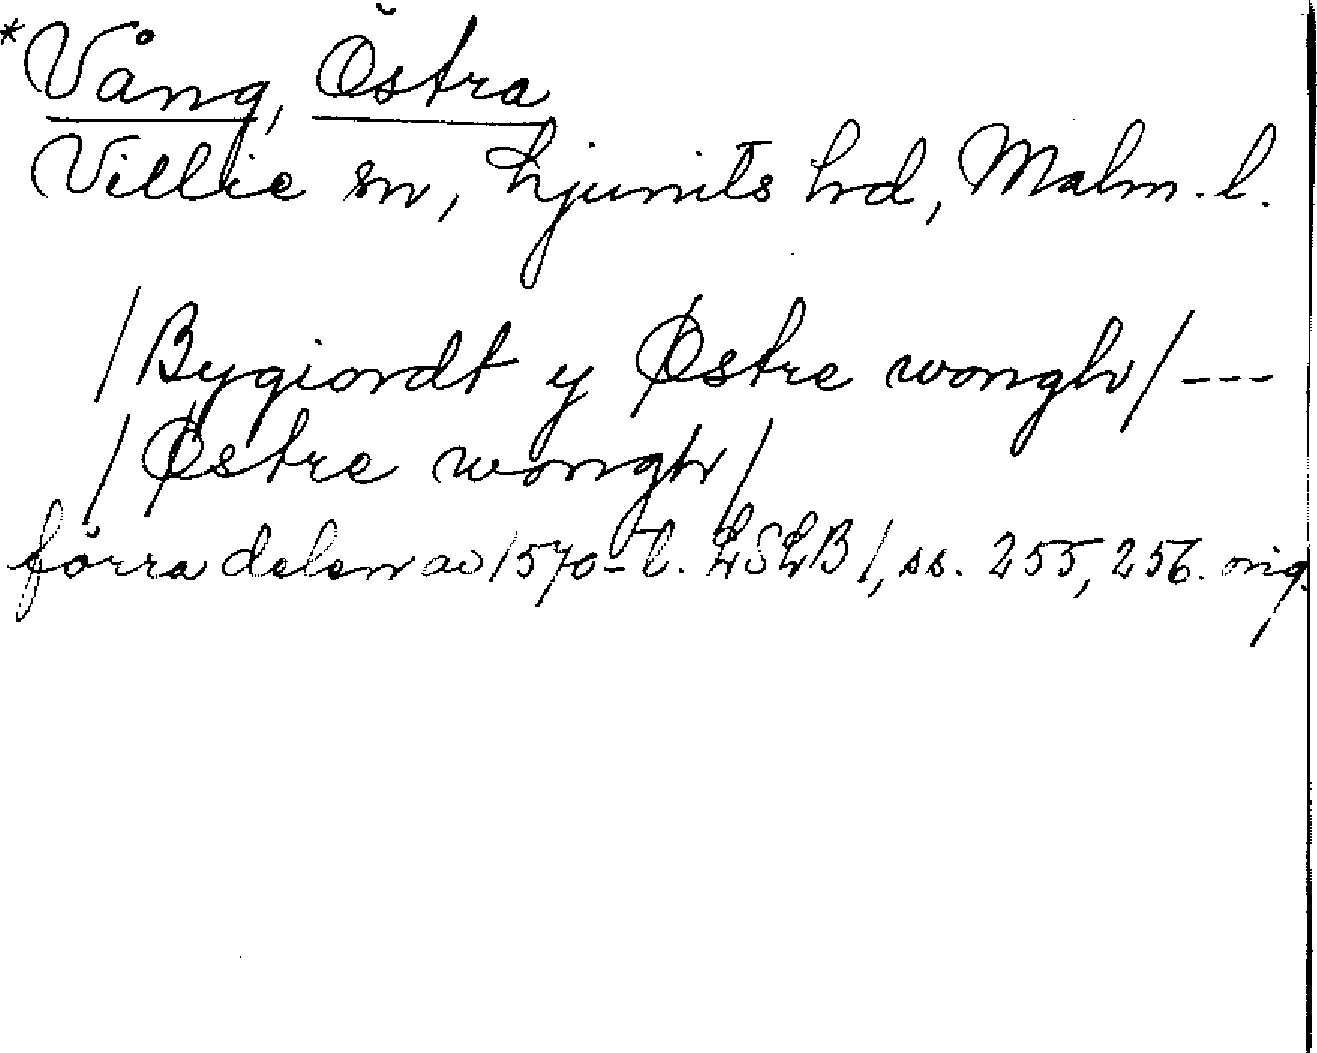 *Vång, Östra
Villie sn, Ljunits hd, Malm. l.
/Bygiordt y Østre wongh/ ---
/Østre wongh/
förra delen av 1570-t. LSLB/, ss. 255, 256. orig.